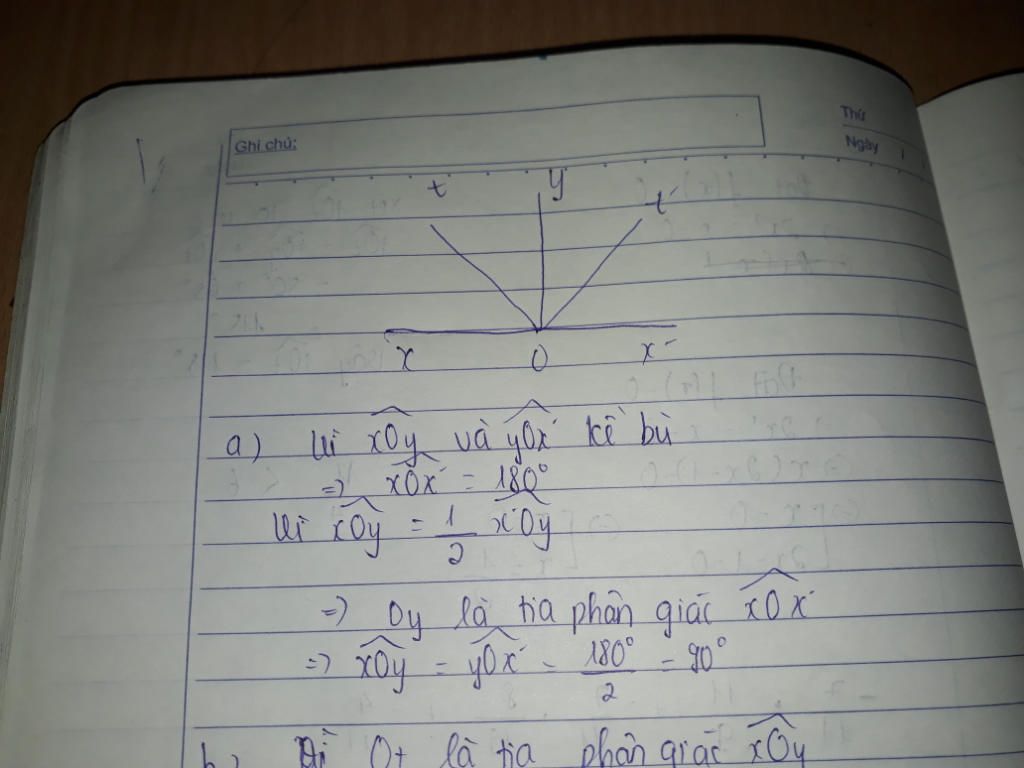 Thứ
Ghi chú:
Ngày
t y t'
x O x'
a) Vì xOy và yOx' kề bù
=> xOx' = 180°
Vì xOy = 1/2 x'Oy
=> Oy là tia phân giác xOx'
=> xOy = yOx' = 180°/2 = 90°
b) Vì Ot là tia phân giác xOy